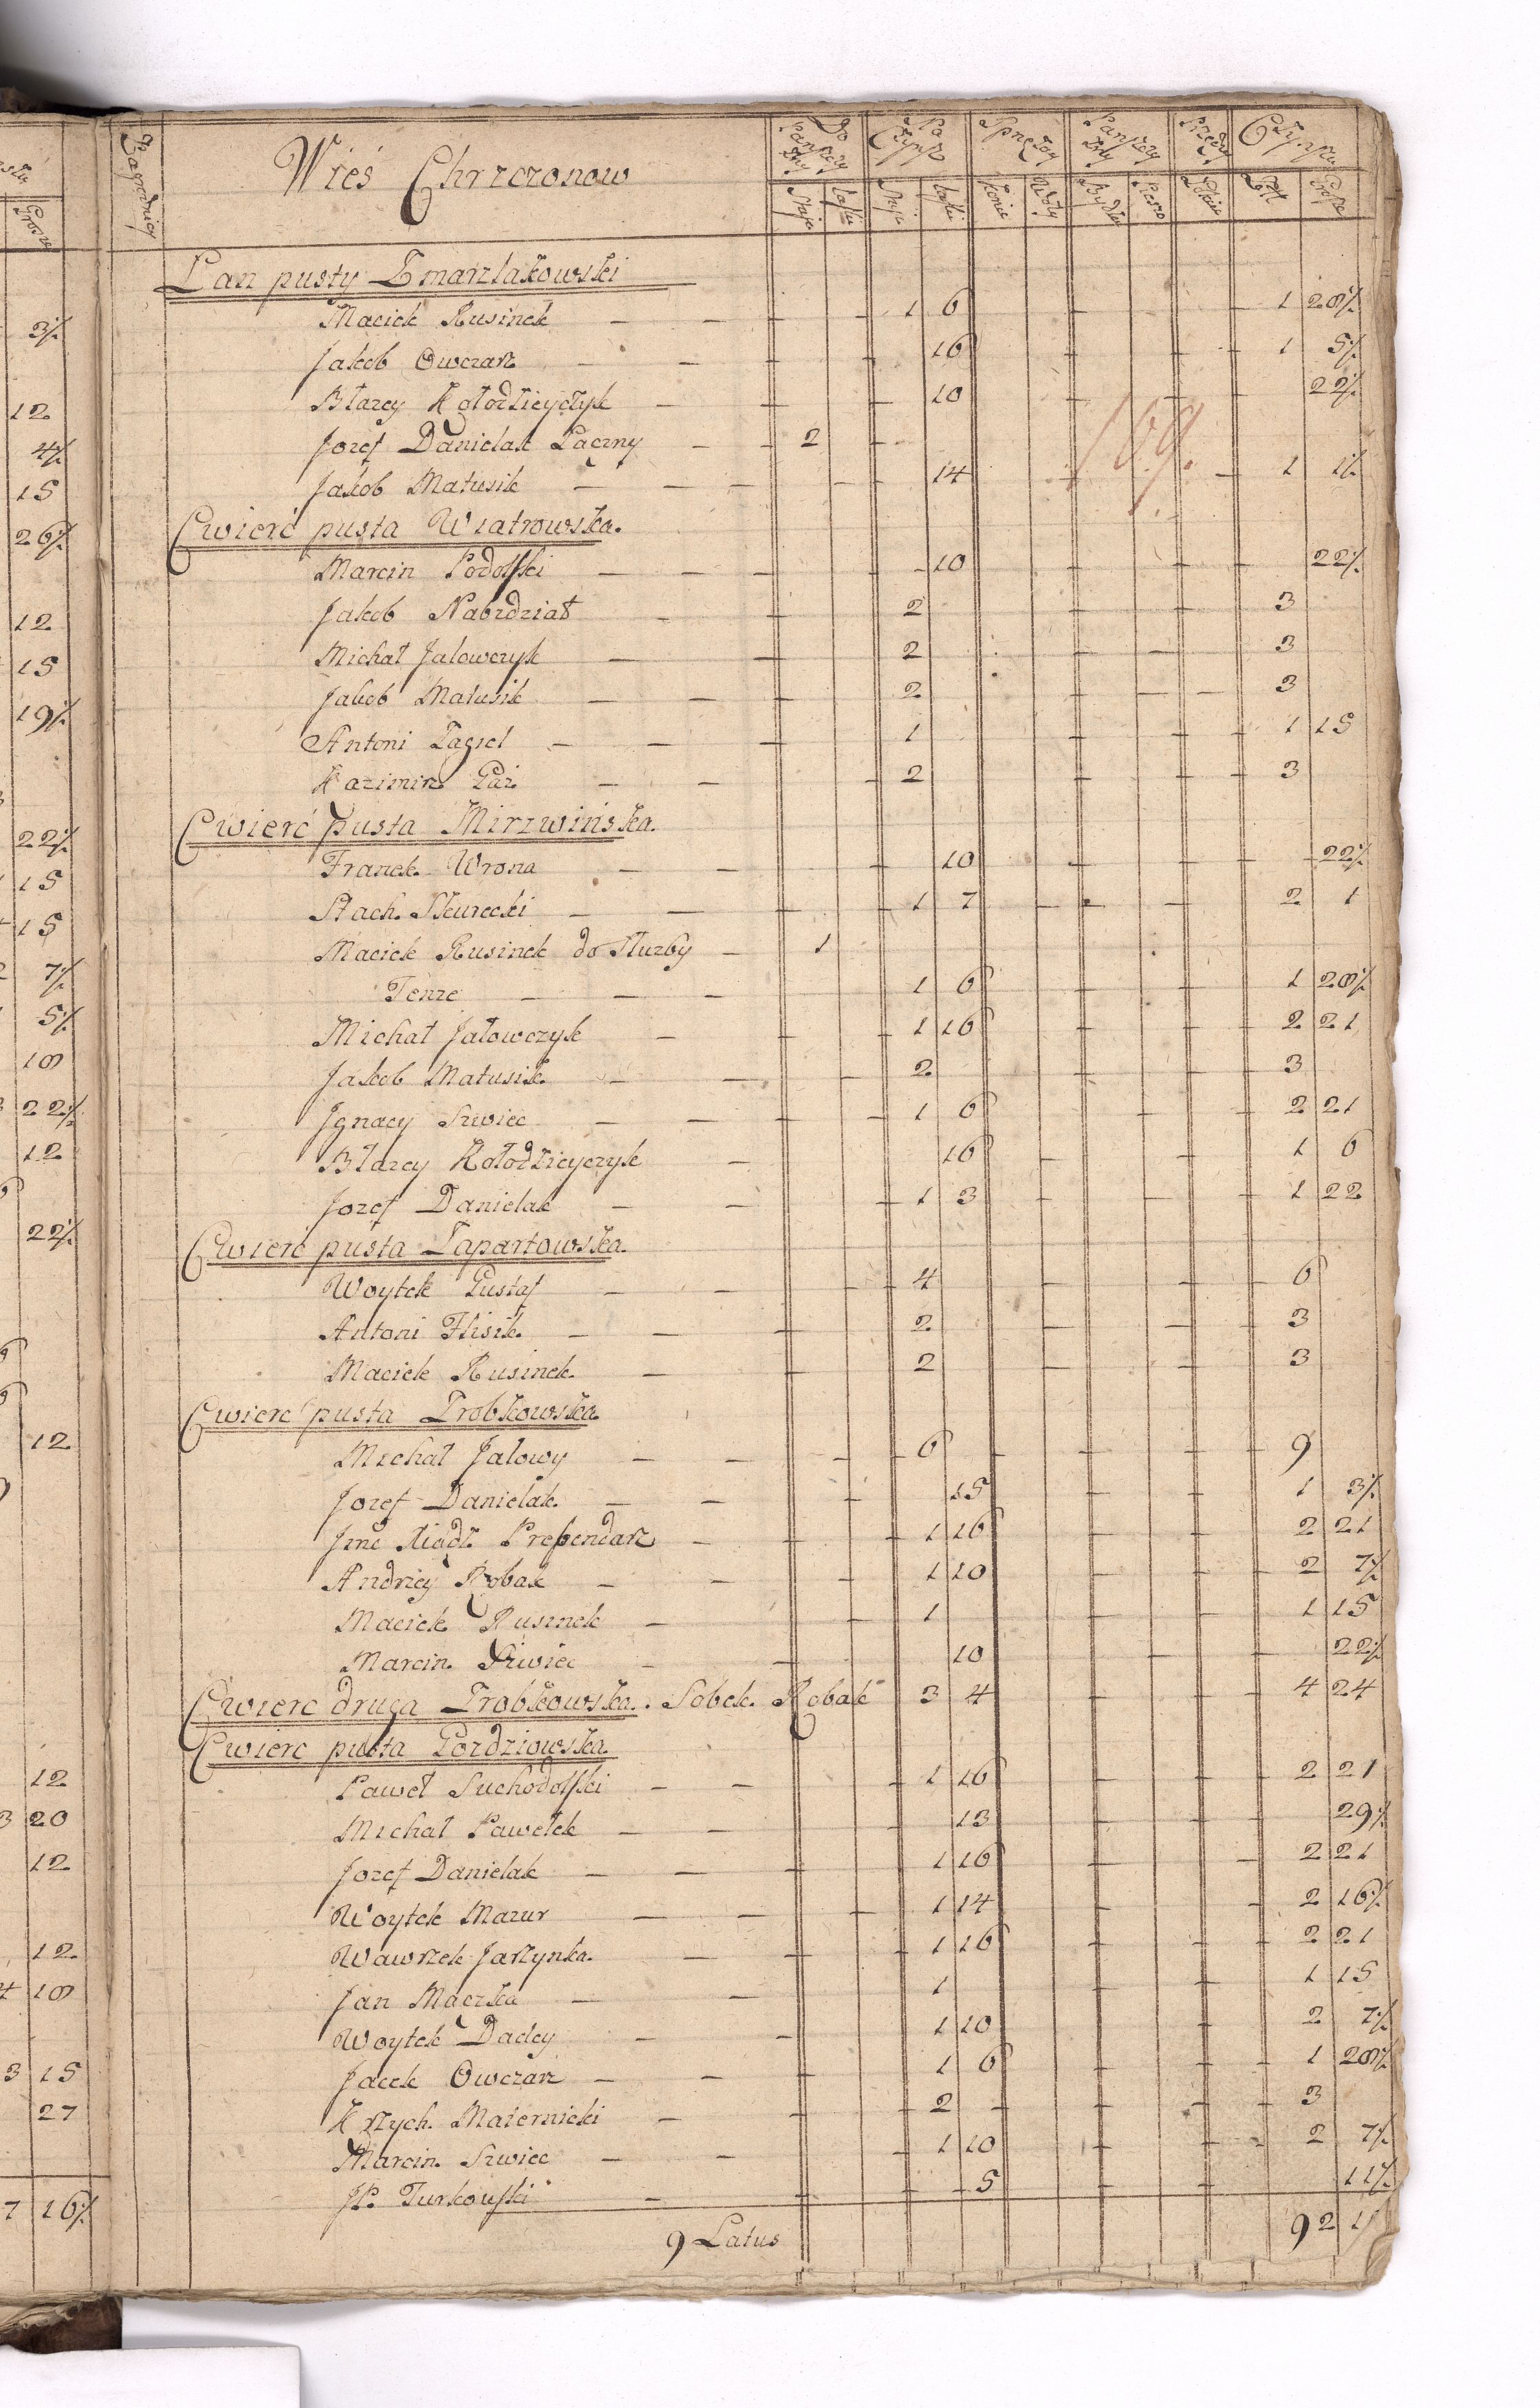 Wieś Chrzczonow
Zagrodnicy
Do Panszczyzny
Po Czynsz
Sprzężay
Czynszu
Staje
Łaski
Staje
Łaski
Konie
Woły
Bydłem
Pieszo
Złł
Grosze
Łan pusty Zmarzlakowski
Maciek Rusinek — — 1 6 1 28½
Jakob Owczarz — — 16 1 5½
Błazey Kołodzieyczyk — 10 22½
Jozef Danielak Łaczny — 2
169.
Jakob Matusik — — 14 1 1½
Cwierć pusta Wiatrowska.
Marcin Podolski — — — 10 22½
Jakob Nabzdział — 2 3
Michał Jalowczyk — — 2 3
Jakob Matusik — — 2 3
Antoni Zagiel — — — 1 1 15
Kazimirz Guz — — 2 3
Cwierć pusta Mirzwińska.
Franek Wrona — — 10 22½
Stach. Skurecki — — 1 7 2 1
Maciek Rusinek do Służby — 1
Tenze — — — 1 6 1 28½
Michał Jałowczyk — 1 16 2 21
Jakob Matusik — — 2 3
Jgnacy Szwiec — — 1 6 2 21
Błazey Kołodzieyczyk — 16 1 6
Jozef Danielak — — 1 3 1 22
Cwierć pusta Łapartowska.
Woytek Gustaf — — 4 6
Antoni Flisik — — 2 3
Maciek Rusinek — 2 3
Cwierc pusta Trobkowska
Michał Jalowy — — 6 9
Jozef Danielak — — 15 1 3½
Jmć Xiądz Prebendarz — 1 16 2 21
Andrzey Robak — — 1 10 2 7½
Maciek Rusinek — 1 1 15
Marcin Szwiec — — 10 22½
Cwierc druga Trobkowska. Sobek Robak 3 4 4 24
Cwierc pusta Gozdziowska
Paweł Suchodolski — — 1 16 2 21
Michał Pawełek — — 13 29½
Jozef Danielak — — 1 16 2 21
Woytek Mazur — — 1 14 2 16½
Wawrzek Jarzynka — 1 16 2 21
Jan Maczka — — 1 1 15
Woytek Dadey — — 1 10 2 7½
Jacek Owczarz — — 1 6 1 28½
Krzych. Maternicki — 2 3
Marcin Szwiec — — 1 10 2 7½
JP. Turkowski — 5 11½
9 Latus 92 1½